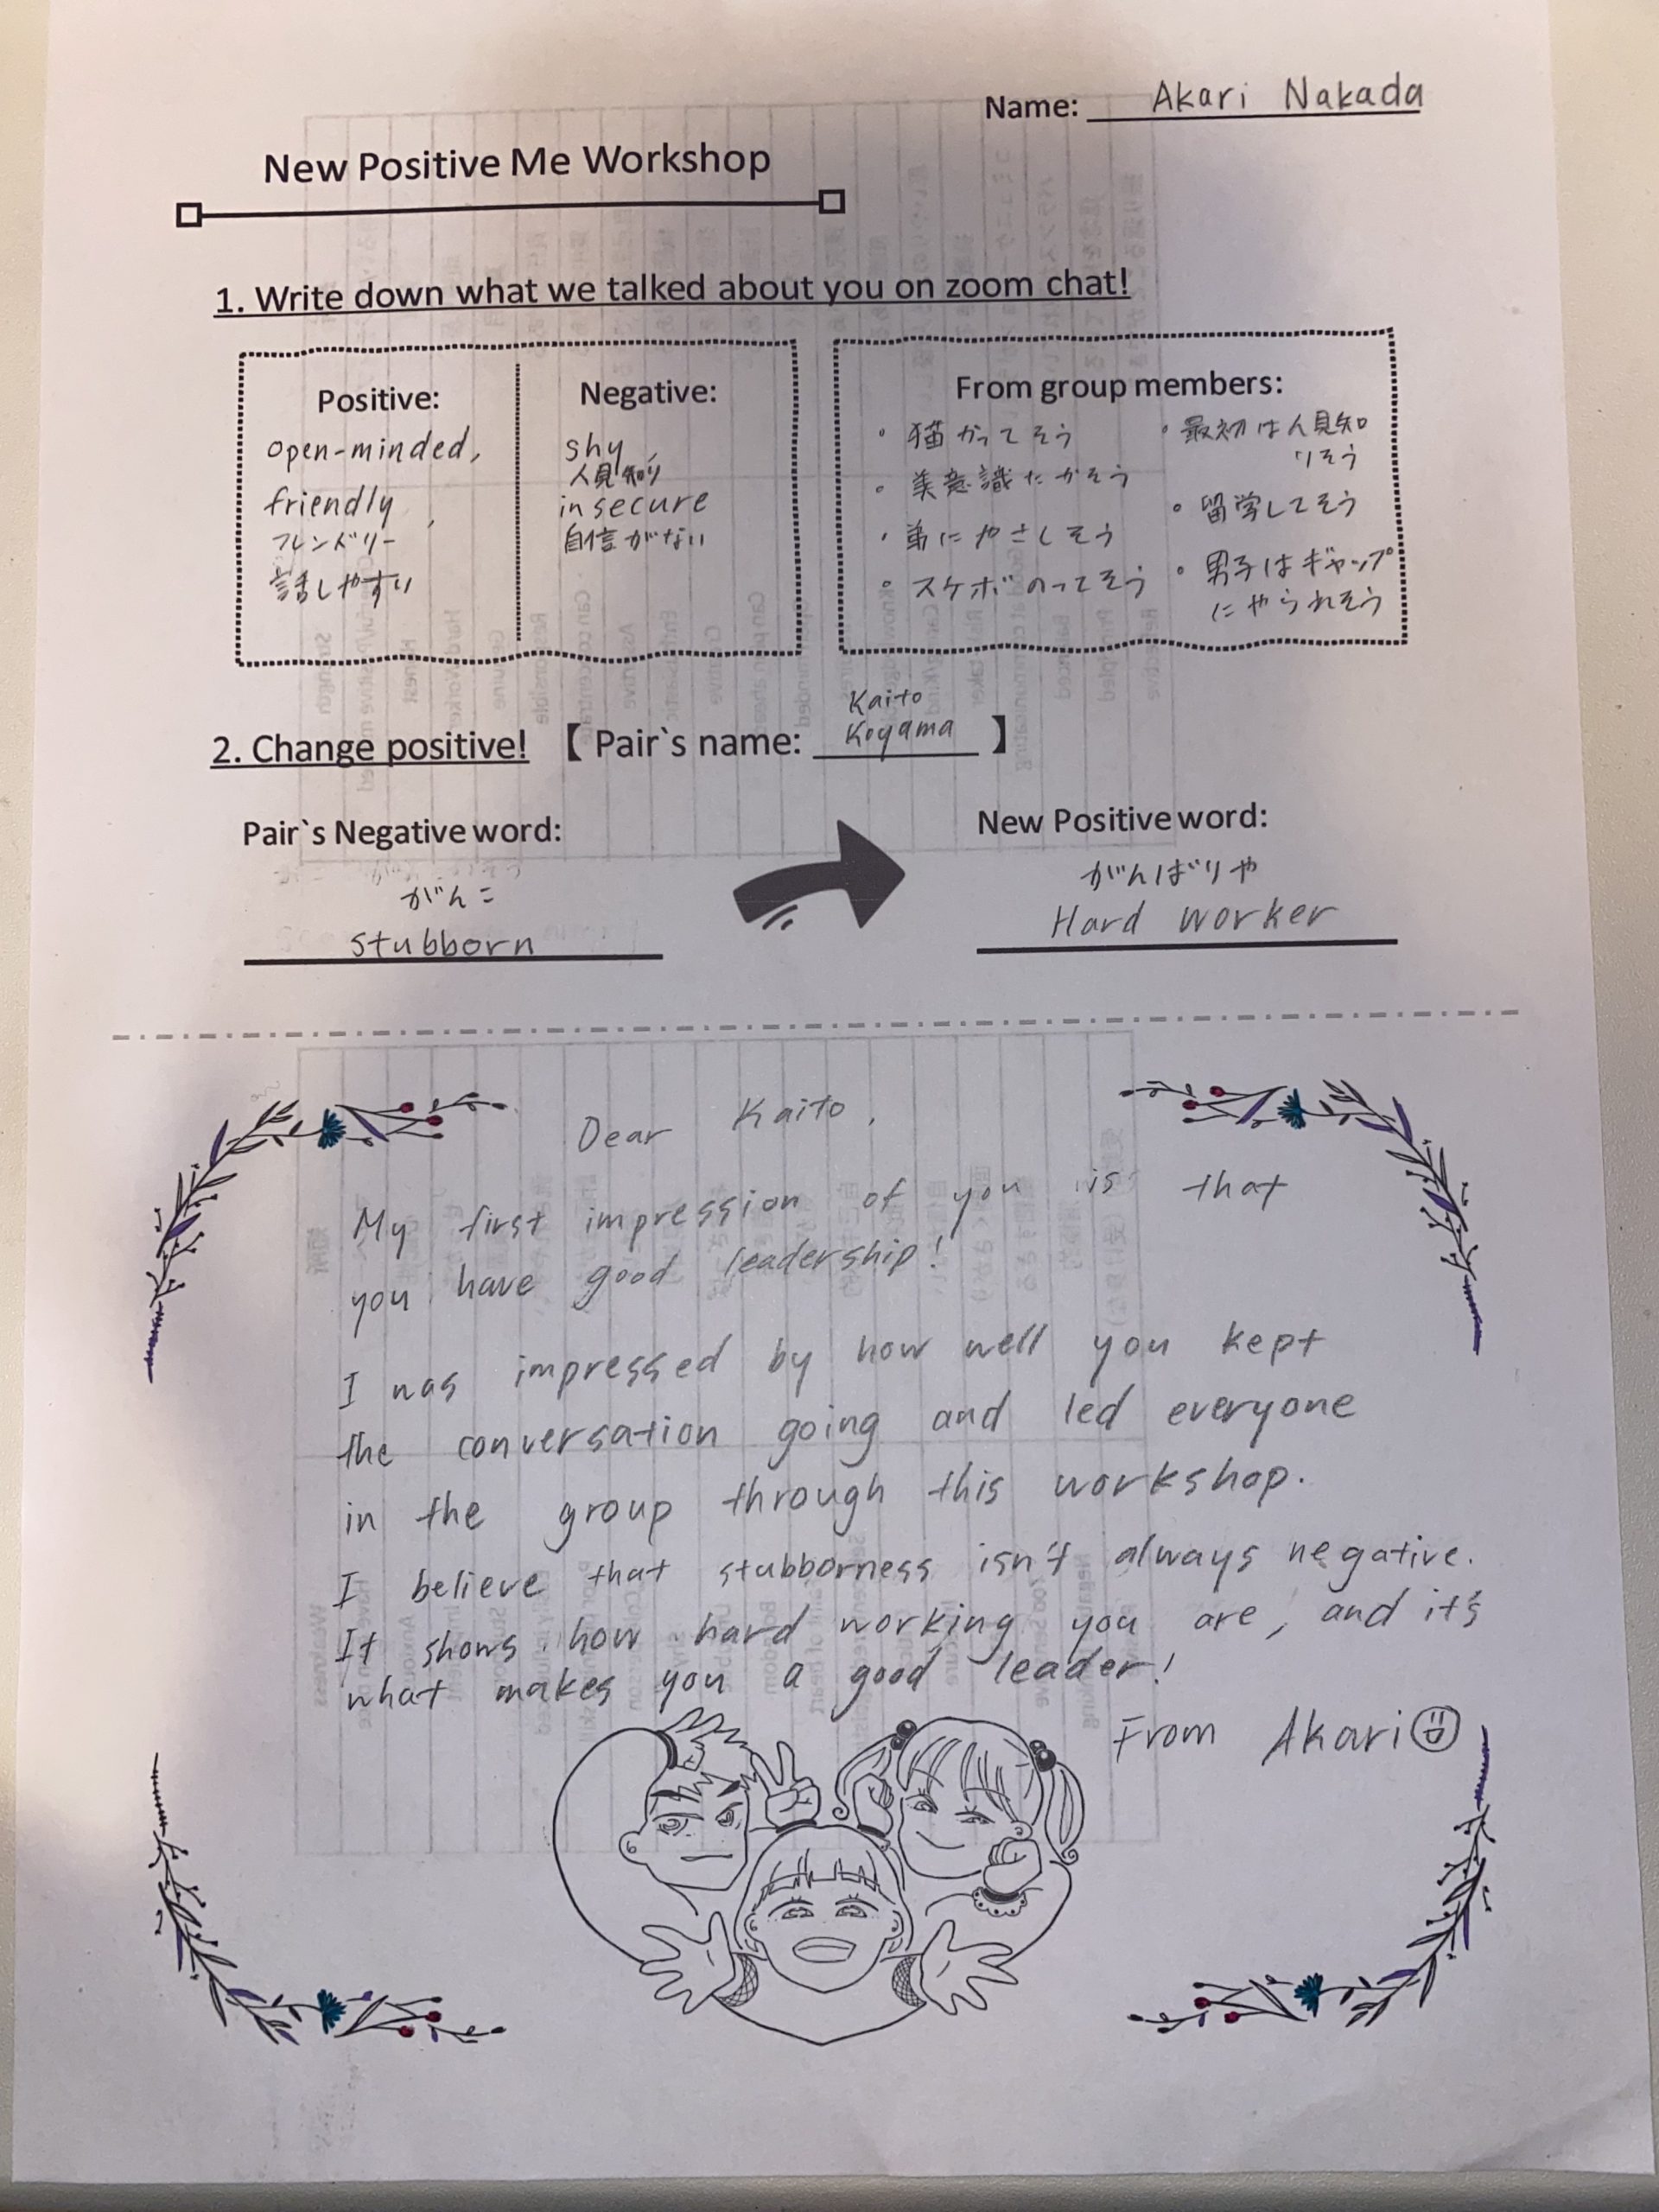 Name: Akari Nakada
New Positive Me Workshop
1. Write down what we talked about you on zoom chat!
Positive:
open-minded,
friendly,
フレンドリー
話しやすい
Negative:
shy,
人見知り
insecure
自信がない
From group members:
・猫かってそう
・美意識たかそう
・弟にやさしそう
・スケボのってそう
・最初は人見知
りそう
・留学してそう
・男子はギャップ
にやられそう
2. Change positive! 【 Pair`s name: Kaito
Koyama 】
Pair`s Negative word:
がんこ
stubborn
New Positive word:
がんばりや
Hard worker
Dear Kaito,
My first impression of you is that
you have good leadership!
I was impressed by how well you kept
the conversation going and led everyone
in the group through this workshop.
I believe that stubborness isn't always negative.
It shows how hard working you are, and it's
what makes you a good leader!
From Akari